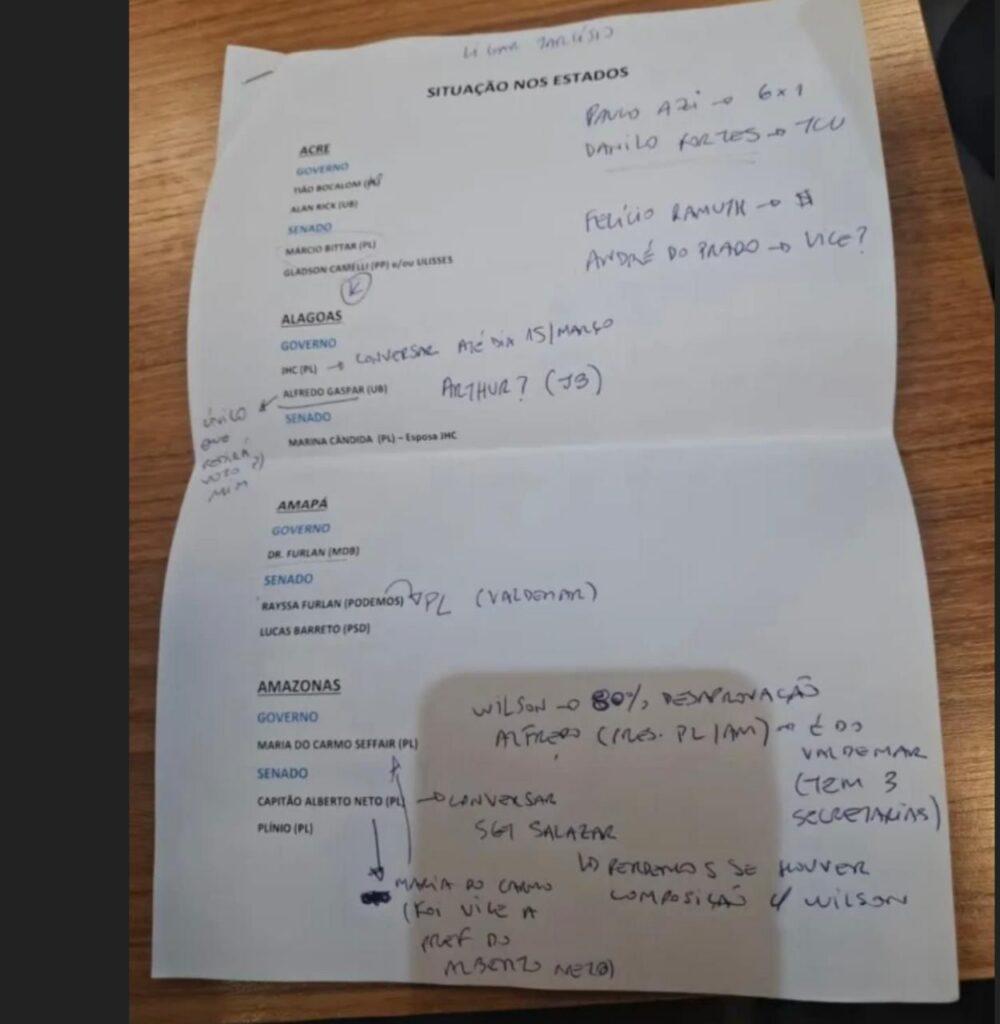 LIGAR TARCÍSIO
SITUAÇÃO NOS ESTADOS
PAULO AZI → 6x1
DANILO FORTES → TCU
FELÍCIO RAMUTH → $
ANDRÉ DO PRADO → VICE?
ACRE
GOVERNO
TIÃO BOCALOM
ALAN RICK (UB)
SENADO
MÁRCIO BITTAR (PL)
GLADSON CAMELLI (PP) e/ou ULISSES
K
ALAGOAS
GOVERNO
JHC (PL) → CONVERSAR ATÉ DIA 15/MARÇO
ALFREDO GASPAR (UB) ARTHUR? (JB)
ÚNICO
QUE
PEDIRÁ
VOTO P/
MIM
SENADO
MARINA CÂNDIDA (PL) – Esposa JHC
AMAPÁ
GOVERNO
DR. FURLAN (MDB)
SENADO
RAYSSA FURLAN (PODEMOS) → PL (VALDEMAR)
LUCAS BARRETO (PSD)
AMAZONAS
WILSON → 80% DESAPROVAÇÃO
GOVERNO
ALFREDO (PRES. PL/AM) → É DO
VALDEMAR
(TEM 3
SECRETARIAS)
MARIA DO CARMO SEFFAIR (PL)
SENADO
CAPITÃO ALBERTO NETO (PL) → CONVERSAR
SGT SALAZAR
PLÍNIO (PL)
↳ PERDEMOS SE HOUVER
COMPOSIÇÃO C/ WILSON
MARIA DO CARMO
(FOI VICE A
PREF DO
ALBERTO NETO)